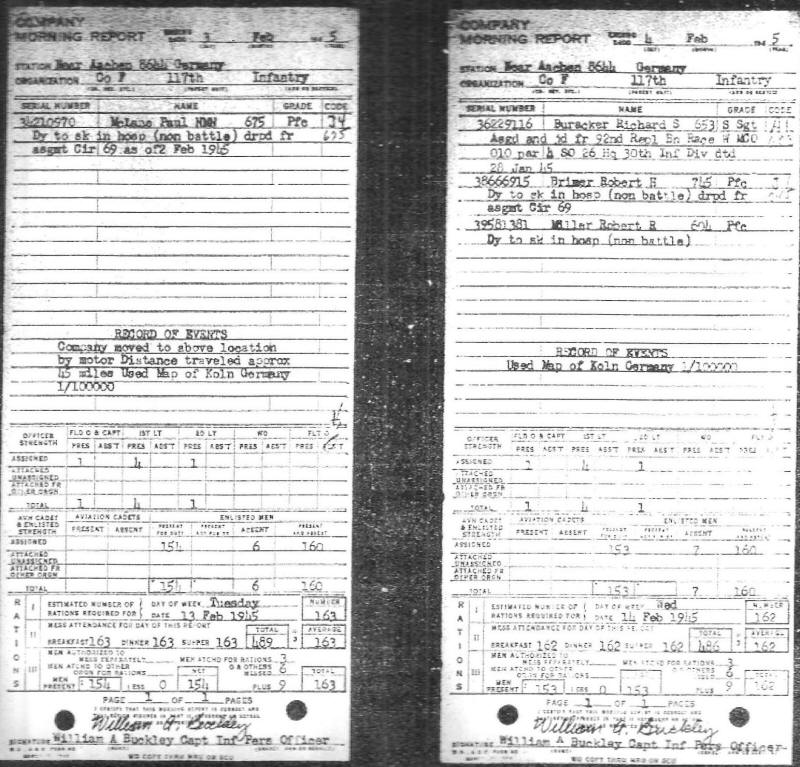 COMPANY
MORNING REPORT ENDED 2400 3 Feb 194 5
STATION Near Aachen 8644 Germany
ORGANIZATION Co F 117th Infantry
SERIAL NUMBER NAME GRADE CODE
34210970 McLane Paul NMN 675 Pfc
Dy to sk in hosp (non battle) drpd fr
asgmt Cir 69 as of2 Feb 1945
RECORD OF EVENTS
Company moved to above location
by motor Distance traveled approx
45 miles Used Map of Koln Germany
1/100000
OFFICER STRENGTH FLD O & CAPT 1ST LT 2D LT WO FLT O
PRES ABS'T PRES ABS'T PRES ABS'T PRES ABS'T PRES
ASSIGNED 1 4 1
ATTACHED UNASSIGNED
ATTACHED FR OTHER ORGN
TOTAL 1 4 1
AVN CADET & ENLISTED STRENGTH AVIATION CADETS ENLISTED MEN
PRESENT ABSENT PRESENT FOR DUTY PRESENT NOT FOR DY ABSENT PRESENT AND ABSENT
ASSIGNED 154 6 160
ATTACHED UNASSIGNED
ATTACHED FR OTHER ORGN
TOTAL 154 6 160
RATIONS
I ESTIMATED NUMBER OF RATIONS REQUIRED FOR DAY OF WEEK Tuesday DATE 13 Feb 1945 NUMBER 163
II MESS ATTENDANCE FOR DAY OF THIS REPORT TOTAL AVERAGE
BREAKFAST 163 DINNER 163 SUPPER 163 489 ÷ 3 163
III MEN AUTHORIZED TO MESS SEPARATELY MEN ATCHD FOR RATIONS 3
MEN ATCHD TO OTHER ORGN FOR RATIONS NET O & OTHERS MESSED 6
MEN PRESENT 154 LESS 0 154 PLUS 9 163
PAGE 1 OF 1 PAGES
William A. Buckley
SIGNATURE William A Buckley Capt Inf Pers Officer
WD COPY THRU MRU OR SCU
COMPANY
MORNING REPORT ENDED 2400 4 Feb 194 5
STATION Near Aachen 8644 Germany
ORGANIZATION Co F 117th Infantry
SERIAL NUMBER NAME GRADE CODE
36229116 Buracker Richard S 653 S Sgt
Asgd and jd fr 92nd Repl Bn Race W MCO
010 par 4 SO 26 Hq 30th Inf Div dtd
28 Jan 45
38666915 Brimer Robert H 745 Pfc
Dy to sk in hosp (non battle) drpd fr
asgmt Cir 69
39581381 Miller Robert R 604 Pfc
Dy to sk in hosp (non battle)
RECORD OF EVENTS
Used Map of Koln Germany 1/100000
OFFICER STRENGTH FLD O & CAPT 1ST LT 2D LT WO FLT O
PRES ABS'T PRES ABS'T PRES ABS'T PRES ABS'T PRES
ASSIGNED 1 4 1
ATTACHED UNASSIGNED
ATTACHED FR OTHER ORGN
TOTAL 1 4 1
AVN CADET & ENLISTED STRENGTH AVIATION CADETS ENLISTED MEN
PRESENT ABSENT ABSENT PRESENT AND ABSENT
ASSIGNED 153 7 160
ATTACHED UNASSIGNED
ATTACHED FR OTHER ORGN
TOTAL 153 7 160
RATIONS
I ESTIMATED NUMBER OF RATIONS REQUIRED FOR DAY OF WEEK Wed DATE 14 Feb 1945 NUMBER 162
II MESS ATTENDANCE FOR DAY OF THIS REPORT TOTAL AVERAGE
BREAKFAST 162 DINNER 162 SUPPER 162 486 ÷ 3 162
III MEN AUTHORIZED TO MESS SEPARATELY MEN ATCHD FOR RATIONS 3
MEN ATCHD TO OTHER ORGN FOR RATIONS NET O & OTHERS MESSED 6
MEN PRESENT 153 LESS 0 153 PLUS 9 162
PAGE 1 OF 1 PAGES
William A. Buckley
SIGNATURE William A Buckley Capt Inf Pers Officer
WD COPY THRU MRU OR SCU